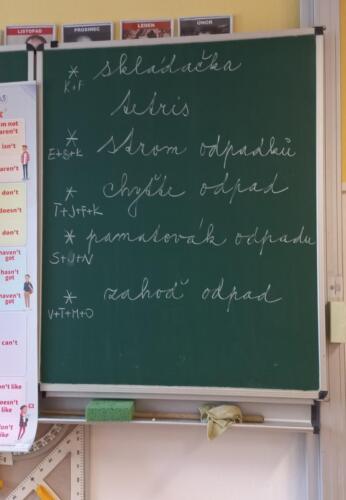 LISTOPAD PROSINEC LEDEN ÚNOR
* skládačka
K+F
tetris
* strom odpadků
E+S+K
* chyťte odpad
T+J+F+K
* pamatovák odpadu
S+J+N
* zahoď odpad
V+T+M+O
m not
aren't
isn't
aren't
don't
doesn't
don't
haven't
got
hasn't
got
haven't
got
can't
on't like
doesn't
like
on't
like